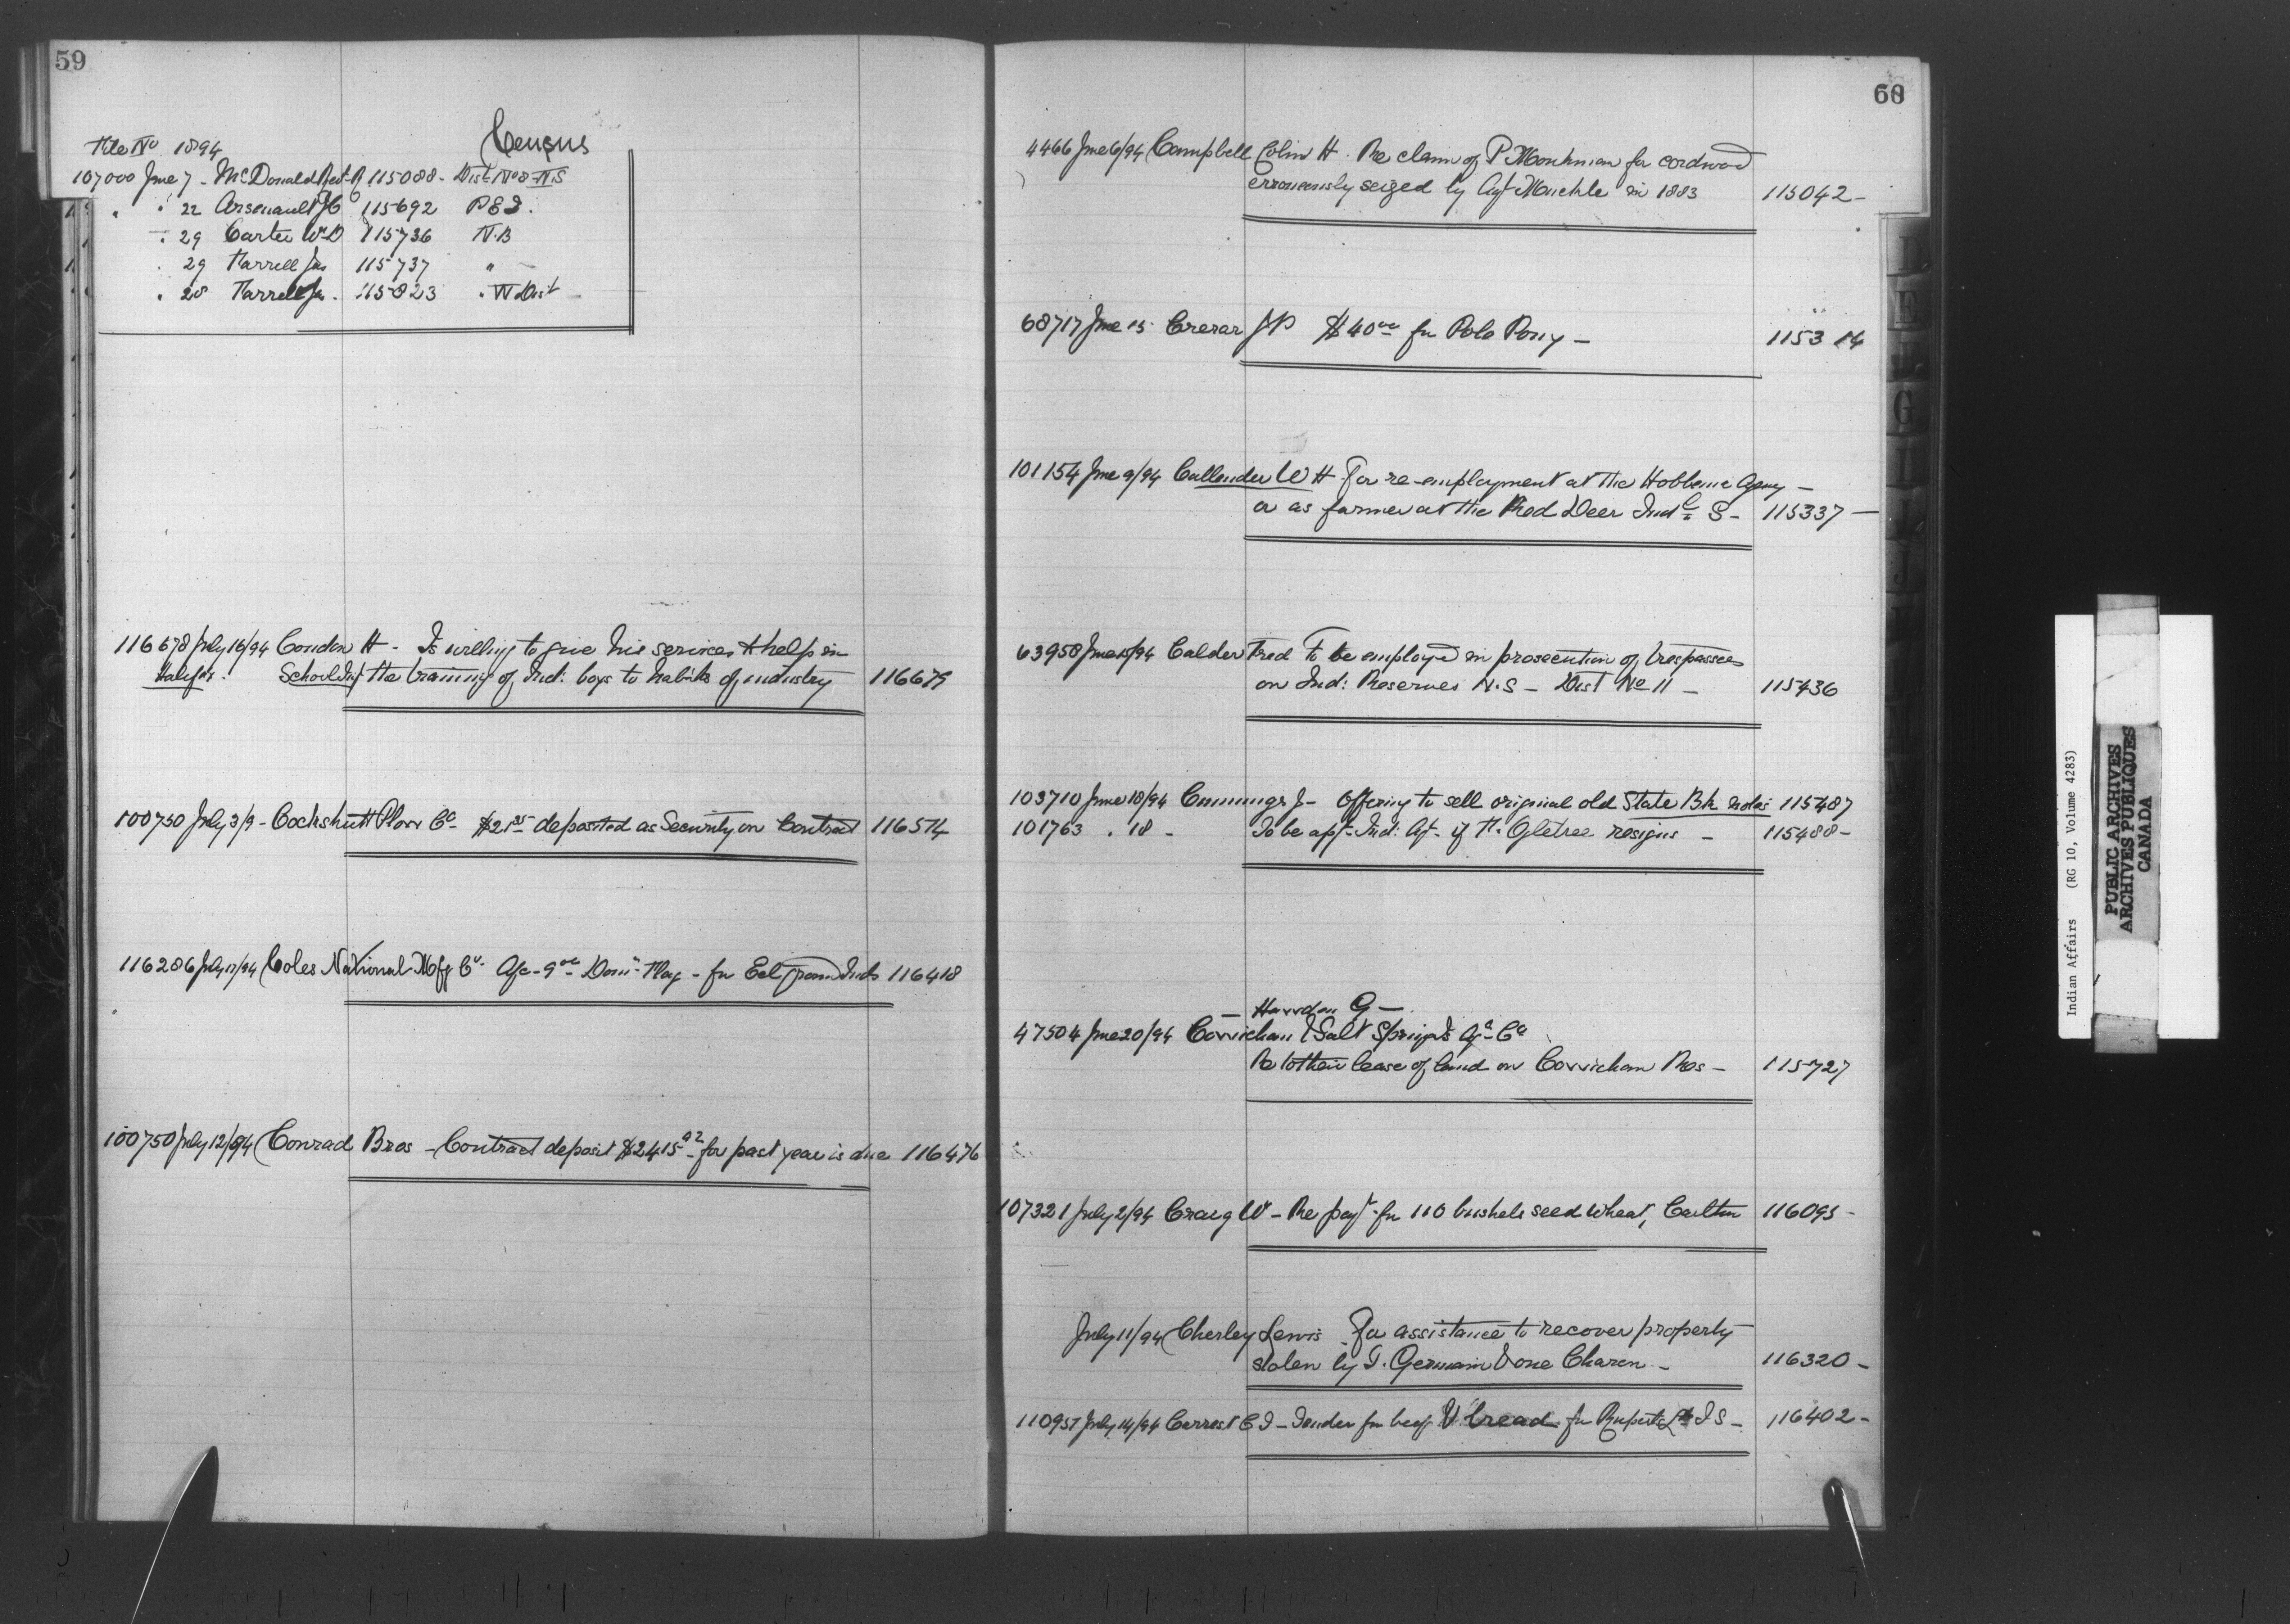 59
File No 1894 Census
107000 June 7 - McDonald Rod R 115088 - Dist No 8 - N.S
" " 22 Arsenault J O 115692 P E I.
" 29 Carter Wm D 115736 N.B
" 29 Farrell Jas 115737 " -
" 28 Farrell Jas. 115823 " W Dist -
116678 July 16/94 Condon H - Is willing to give his services & help in
Halifax. School Inst the training of Ind: boys to habits of industry 116679
100750 July 3/9 - Cockshutt Plow Co - $21 deposited as Security on Contract 116574
116286 July 12/94 Coles National Mfg Co - A/c - 9 00 - Domn Flag - for Ind 116418
100750 July 12/94 Conrad Bros - Contract deposit $2415 92 - for past year is due 116476
60
4466 June 6/94 Campbell Colin H. Re claim of P Monkman for cordwood
erroneously seized by Agt Muckle in 1883 115042 -
68717 June 15 Crerar J P $40 00 for Polo Pony - 115314
101154 June 9/94 Callender W H For re-employment at the Hobbema Agency -
or as farmer at the Red Deer Indl S - 115337 -
63958 June 15/94 Calder Fred To be employed in prosecution of trespassers
on Ind: Reserves N.S - Dist No 11 - 115436
103710 June 18/94 Cummings J - Offering to sell original old State Bk notes 115487
101763 " 18 - To be apt - Ind: Agt - if H. Ogletree resigns - 115488 -
- G -
47504 June 20/94 Cowichan & Salt Springs Agl Co
Re to their lease of land on Cowichan Res - 115727
107321 July 2/94 Craig W - Re payt for 110 bushels seed wheat, Carlton 116095 -
July 11/94 Cherley Lewis For assistance to recover property
stolen by I. Germain & one Charon - 116320 -
110951 July 14/94 C I - Tender for beef & bread for Ruperts Ld I S - 116402 -
D
E
G
I
J
Indian Affairs (RG 10, Volume 4283)
PUBLIC ARCHIVES
ARCHIVES PUBLIQUES
CANADA